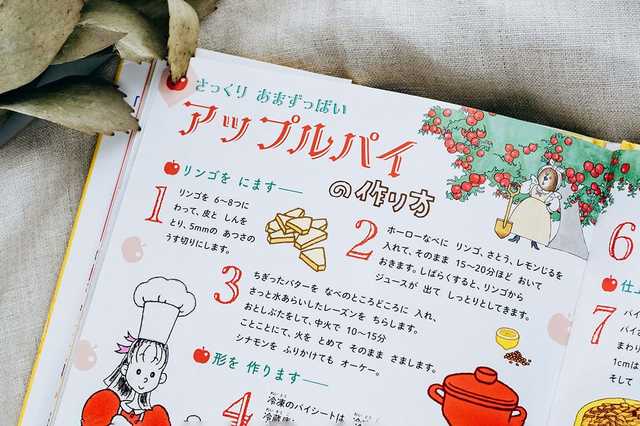 さっくり おまずっぱい
アップルパイ
の作り方
リンゴを にます
1
リンゴを 6〜8つに
わって、皮と しんを
とり、5mmの あつさの
うす切りにします。
2
ホーローなべに リンゴ、さとう、レモンじるを
入れて、そのまま 15〜20分ほど おいて
おきます。しばらくすると、リンゴから
ジュースが 出て しっとりとしてきます。
3
ちぎったバターを なべのところどころに 入れ、
さっと水あらいしたレーズンを ちらします。
おとしぶたをして、中火で 10〜15分
ことことにて、火を とめて そのまま さまします。
シナモンを ふりかけても オーケー。
形を 作ります
4
冷凍のパイシートは
6
仕
7
パイ
パイ
まわり
1cmは
そして